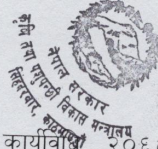 नेपाल सरकार
कृषि तथा पशुपन्छी विकास मन्त्रालय
सिंहदरबार, काठमाडौं
कार्यविधि २०६